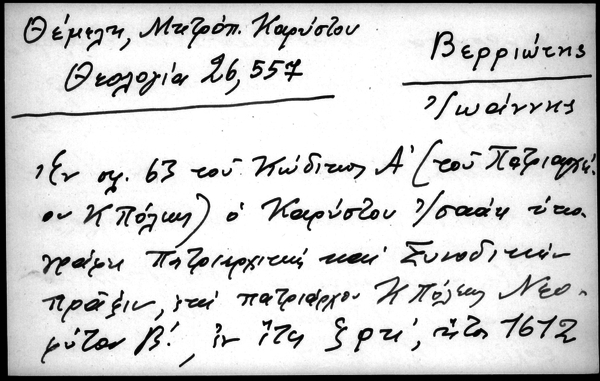 Θέμελη, Μητρόπ. Καρύστου
Θεολογία 26, 557
Βερριώτης
Ἰωάννης
Ἐν σελ. 63 τοῦ Κώδικος Α' (τοῦ Πατριαρχεί-
ου ΚΠόλεως) ὁ Καρύστου Ἰσαάκ ὑπο-
γράφει Πατριαρχικήν καί Συνοδικήν
πρᾶξιν, ἐπί πατριάρχου ΚΠόλεως Νεο-
φύτου Β', ἐν ἔτει ζρκ', ἤτοι 1612